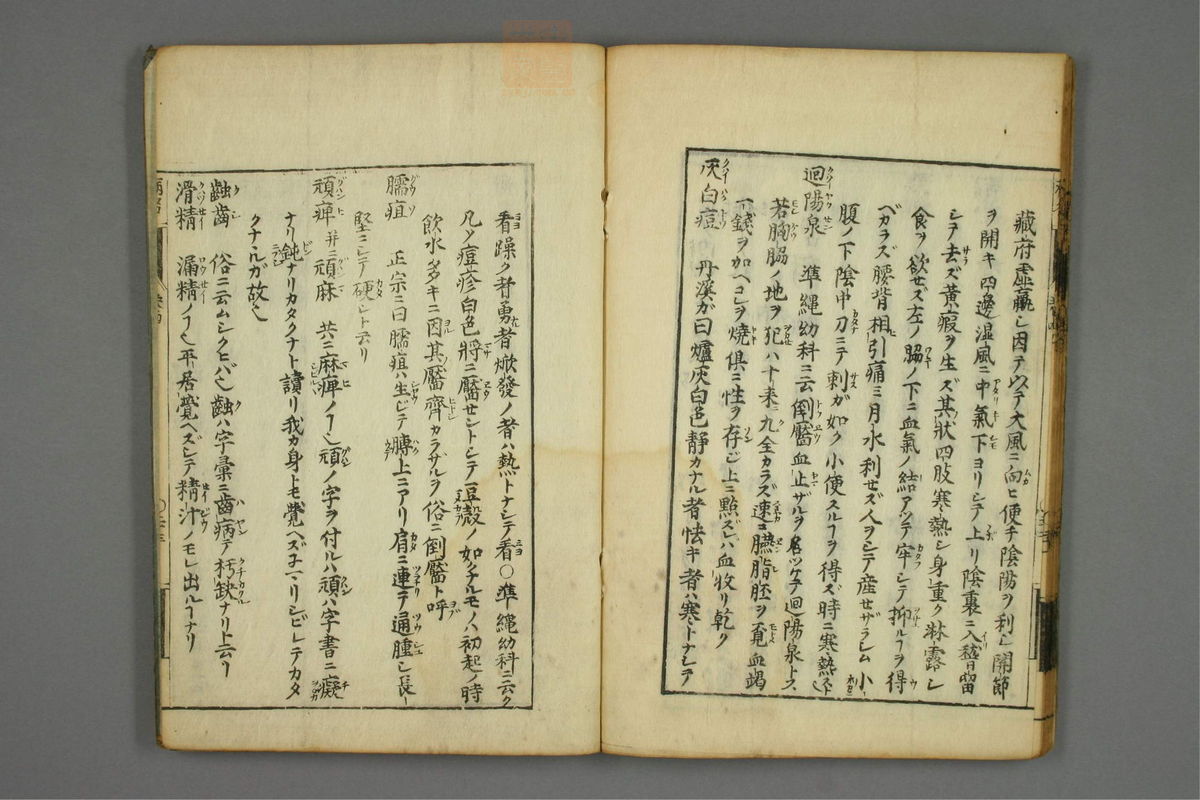 藏府虚羸シ因テ以テ大風ニ向ヒ便チ陰陽ヲ利シ開節
ヲ開キ四邊湿風ニ中氣下ヨリシテ上リ陰裏ニ入稽留
シテ去ズ黄瘕ヲ生ズ其狀四肢寒熱シ身重ク淋露シ
食ヲ欲せズ左ノ脇ノ下ニ血氣ノ結アツテ牢シテ抑ルフヲ得
ベカラズ腰背相引痛ミ月水利せズ人ヲシテ産せザラシム小
腹ノ下陰中刀ニテ刺ガ如ク小便スルフヲ得ズ時ニ寒熱ス
迴陽泉 準繩幼科ニ云倒靨血止ザルヲ名ツケテ迴陽泉トス
若胸脇ノ地ヲ犯ハ十来九全カラズ速ニ臙脂胚ヲ覓血竭
一錢ヲ加ヘコレヲ燒俱ニ性ヲ存ジ上ニ點ズレハ血收リ乾ク
灰白痘 丹溪ガ曰爐灰白色静カナル者怯キ者ハ寒トナシテ
看躁ク者勇者焮發ノ者ハ熱トナシテ看○準繩幼科ニ云ク
凡ソ痘疹白色將ニ靨せントシテ豆殻ノ如クナルモノハ初起ノ時
飲水多キニ因其靨齊カラザルヲ俗ニ倒靨ト呼
臑疽 正宗ニ曰臑疽ハ生ジテ膊上ニアリ肩ニ連テ通腫シ長
堅ニシテ硬シト云リ
頑痺并ニ頑麻 共ニ麻痺ノフ也頑ノ字ヲ付ルハ頑ハ字書ニ癡
ナリ鈍ナリカタクナト讀リ我カ身トモ覺ヘズナマリシビレテカタ
クナルガ故也
齲齒 俗ニ云ムシクヒバ也齲ハ字彙ニ齒病テ朽缺ナリ上云リ
滑精 漏精ノフ也平居覺ヘズシテ精汁ノモレ出ルフナリ